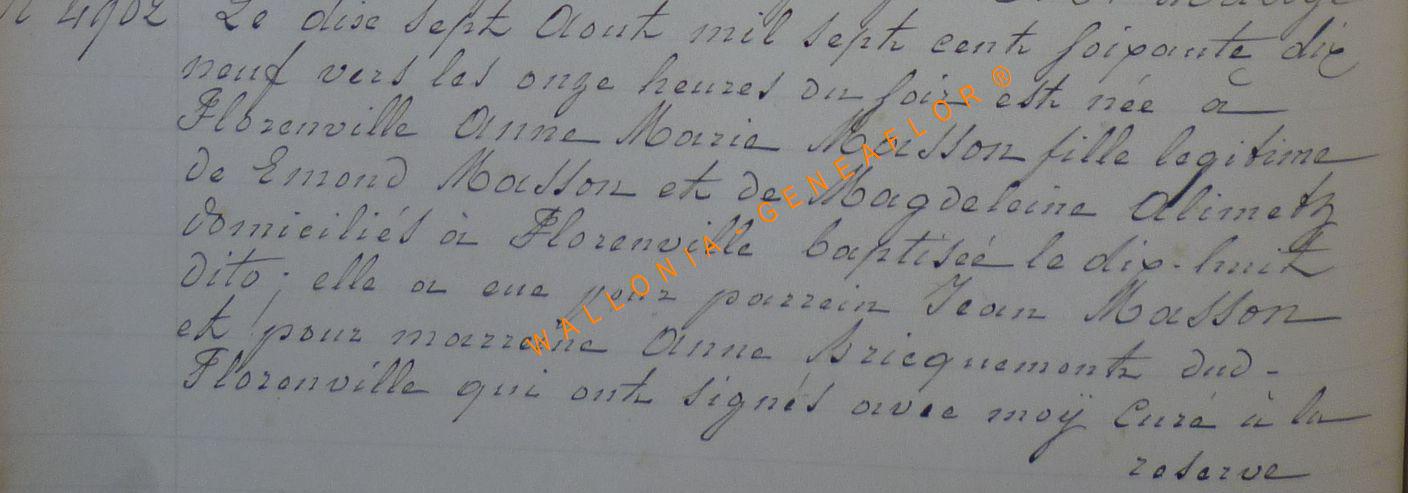 N° 4902 Le dixe sept Aout mil sept cent soixante dix
neuf vers les onze heures du soir est née à
Florenville Anne Marie Masson fille legitime
de Emond Masson et de Magdeleine Alimetz
domiciliés à Florenville baptisée le dix-huit
dito; elle a eue pour parrein Jean Masson
et pour marreine Anne Bricquemont dud-
Florenville qui ont signés avec moÿ Curé à la
reserve
WALLONIA - GENEAFLOR®